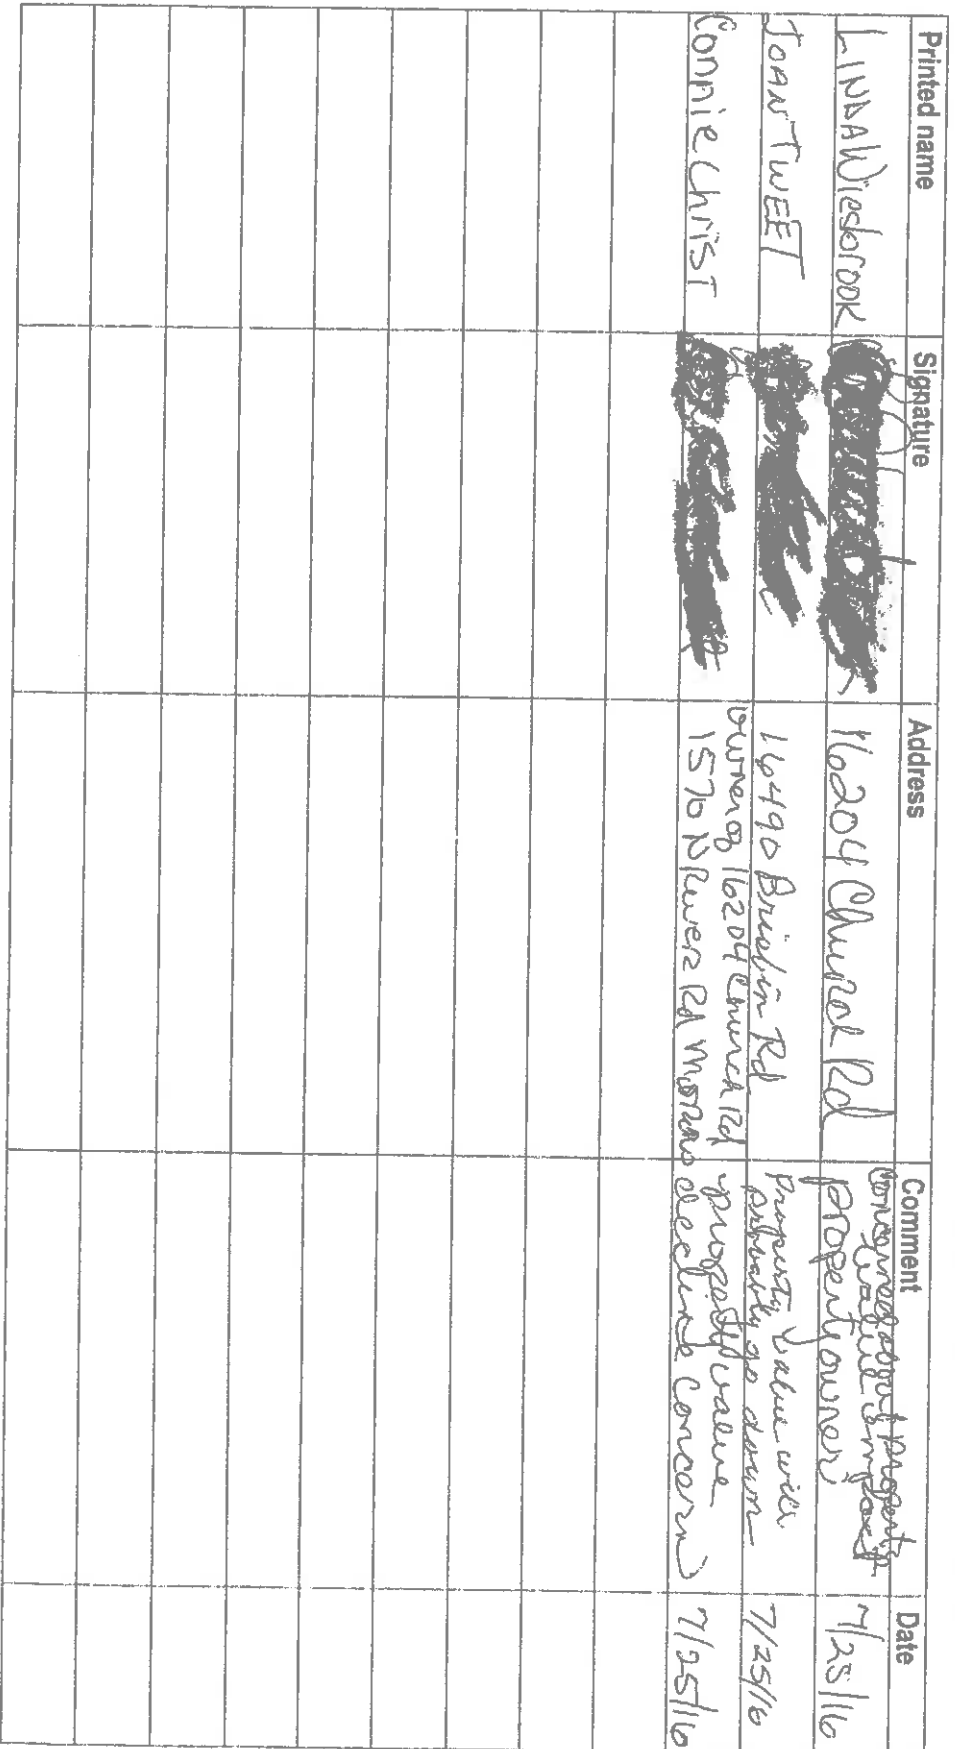 Printed name Signature Address Comment Date
LINDA Wiesbrook 16204 Church Rd Concerned about property value impact
property owner 7/25/16
JOAN TWEET 16490 Brisbin Rd Property value will
probably go down 7/25/16
Connie Christ owner of 16204 Church Rd
1570 N River Rd Morris property value
decline concern 7/25/16